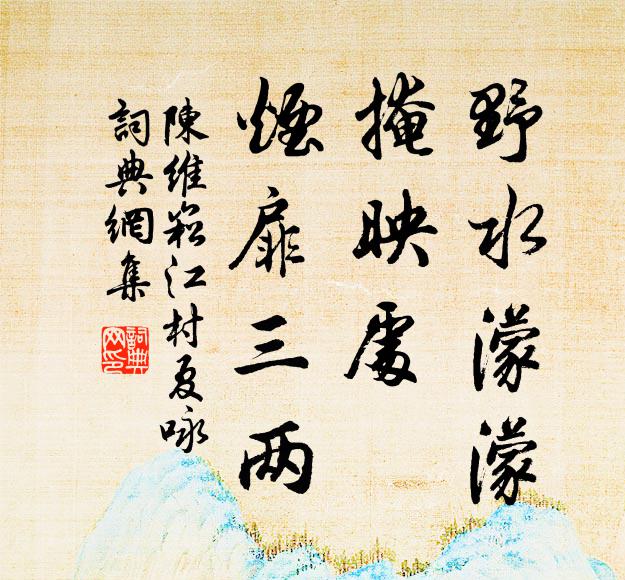 野水濛濛
掩映處
煙扉三两
陳維崧江村夏咏
詞典網集
詞典
网印